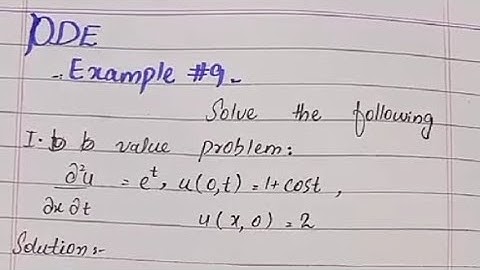 PDE
Example #9.
Solve the following
I. b b value problem:
∂²u/∂x∂t = e^t, u(0,t) = 1 + cost,
u(x,0) = 2
Solution:-